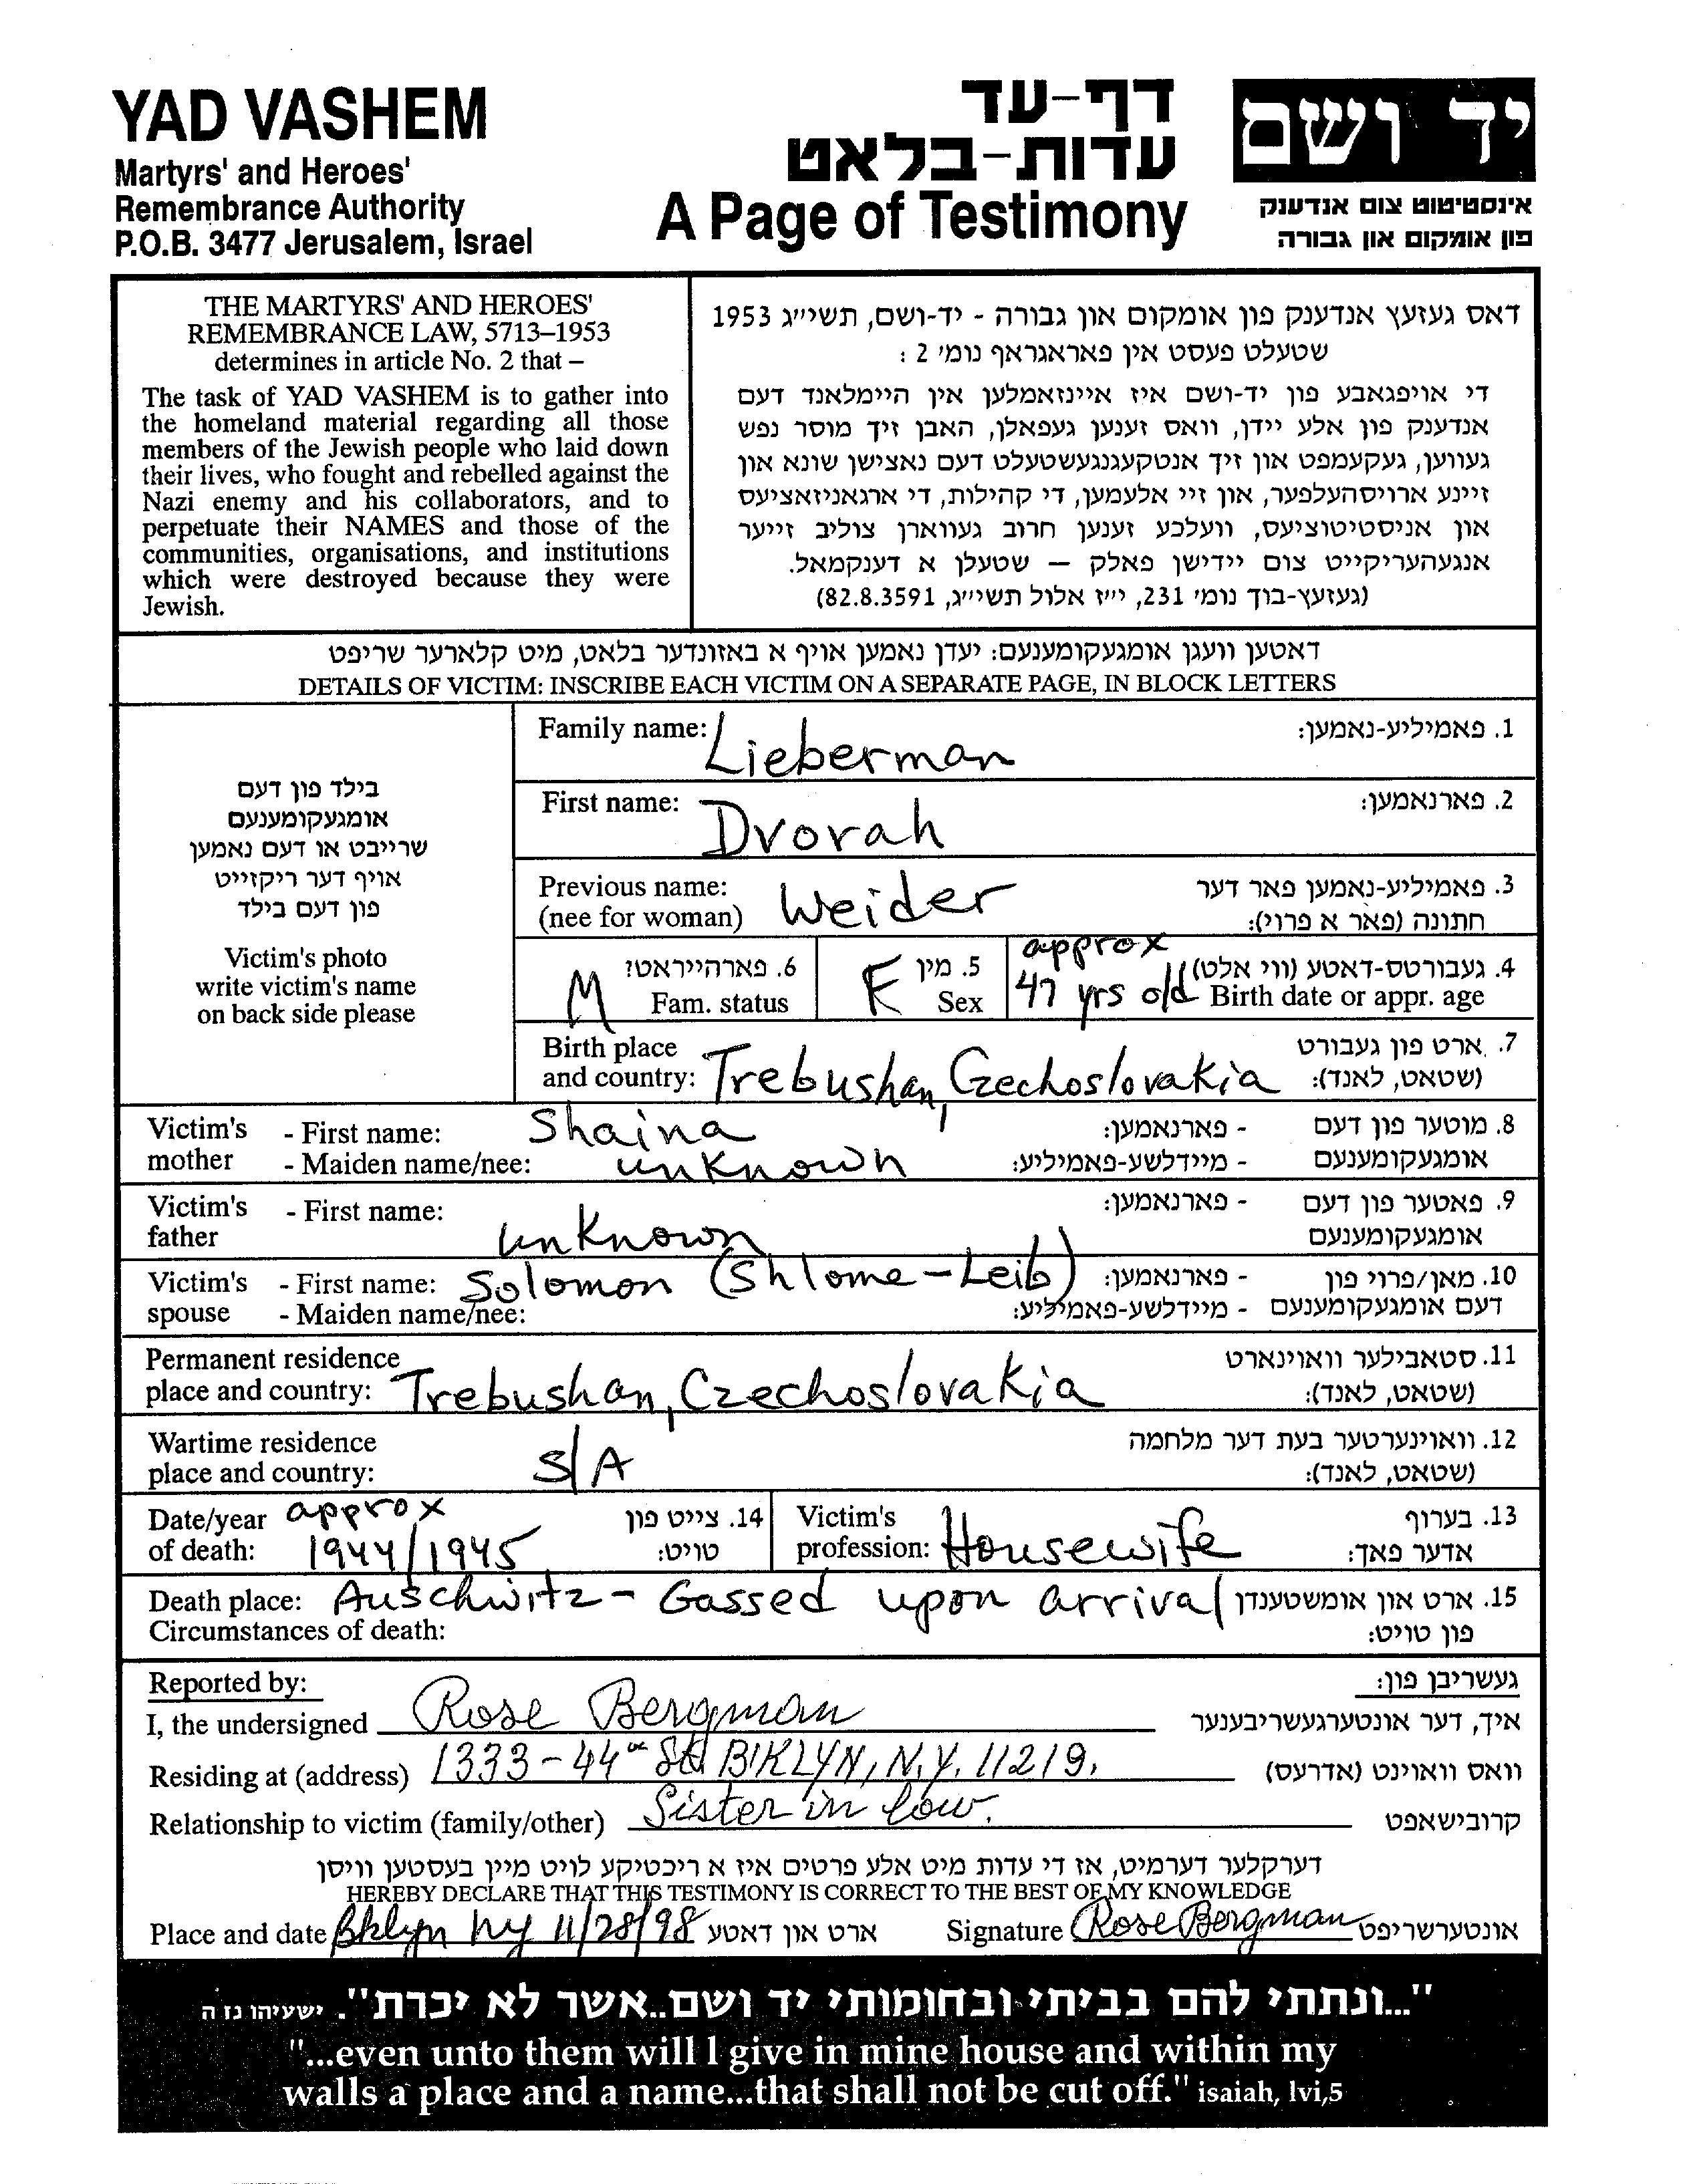 YAD VASHEM
Martyrs' and Heroes'
Remembrance Authority
P.O.B. 3477 Jerusalem, Israel
דף-עד
עדות-בלאט
A Page of Testimony
יד ושם
אינסטיטוט צום אנדענק
פון אומקום און גבורה
THE MARTYRS' AND HEROES'
REMEMBRANCE LAW, 5713–1953
determines in article No. 2 that –
The task of YAD VASHEM is to gather into
the homeland material regarding all those
members of the Jewish people who laid down
their lives, who fought and rebelled against the
Nazi enemy and his collaborators, and to
perpetuate their NAMES and those of the
communities, organisations, and institutions
which were destroyed because they were
Jewish.
דאס געזעץ אנדענק פון אומקום און גבורה - יד-ושם, תשי״ג 1953
שטעלט פעסט אין פאראגראף נומ׳ 2 :
די אויפגאבע פון יד-ושם איז איינזאמלען אין היימלאנד דעם
אנדענק פון אלע יידן, וואס זענען געפאלן, האבן זיך מוסר נפש
געווען, געקעמפט און זיך אנטקעגנגעשטעלט דעם נאצישן שונא און
זיינע ארויסהעלפער, און זיי אלעמען, די קהילות, די ארגאניזאציעס
און אניסטיטוציעס, וועלכע זענען חרוב געווארן צוליב זייער
אנגעהעריקייט צום יידישן פאלק — שטעלן א דענקמאל.
(געזעץ-בוך נומ׳ 231, י״ז אלול תשי״ג, 82.8.3591)
דאטען וועגן אומגעקומענעם: יעדן נאמען אויף א באזונדער בלאט, מיט קלארער שריפט
DETAILS OF VICTIM: INSCRIBE EACH VICTIM ON A SEPARATE PAGE, IN BLOCK LETTERS
בילד פון דעם
אומגעקומענעם
שרייבט או דעם נאמען
אויף דער ריקזייט
פון דעם בילד
Victim's photo
write victim's name
on back side please
Family name: Lieberman 1. פאמיליע-נאמען:
First name: Dvorah 2. פארנאמען:
Previous name: 3. פאמיליע-נאמען פאר דער
(nee for woman) Weider חתונה (פאר א פרוי):
approx
6. פארהייראט? 5. מין 4. געבורטס-דאטע (ווי אלט)
M Fam. status F Sex 47 yrs old Birth date or appr. age
Birth place 7. ארט פון געבורט
and country: Trebushan, Czechoslovakia (שטאט, לאנד):
Victim's - First name: Shaina - פארנאמען: 8. מוטער פון דעם
mother - Maiden name/nee: unknown - מיידלשע-פאמיליע: אומגעקומענעם
Victim's - First name: - פארנאמען: 9. פאטער פון דעם
father unknown אומגעקומענעם
Victim's - First name: Solomon (Shlome-Leib) - פארנאמען: 10. מאן/פרוי פון
spouse - Maiden name/nee: - מיידלשע-פאמיליע: דעם אומגעקומענעם
Permanent residence 11. סטאבילער וואוינארט
place and country: Trebushan, Czechoslovakia (שטאט, לאנד):
Wartime residence 12. וואוינערטער בעת דער מלחמה
place and country: S/A (שטאט, לאנד):
Date/year approx 14. צייט פון Victim's 13. בערוף
of death: 1944/1945 טויט: profession: Housewife אדער פאך:
Death place: Auschwitz - Gassed upon arrival 15. ארט און אומשטענדן
Circumstances of death: פון טויט:
Reported by: געשריבן פון:
I, the undersigned Rose Bergman איך, דער אונטערגעשריבענער
Residing at (address) 1333-44 St BKLYN, N.Y. 11219. וואס וואוינט (אדרעס)
Relationship to victim (family/other) Sister in law. קרובישאפט
דערקלער דערמיט, אז די עדות מיט אלע פרטים איז א ריכטיקע לויט מיין בעסטען וויסן
HEREBY DECLARE THAT THIS TESTIMONY IS CORRECT TO THE BEST OF MY KNOWLEDGE
Place and date Bklyn ny 11/28/98 ארט און דאטע Signature Rose Bergman אונטערשריפט
"...ונתתי להם בביתי ובחומותי יד ושם..אשר לא יכרת". ישעיהו נז ה
"...even unto them will I give in mine house and within my
walls a place and a name...that shall not be cut off." isaiah, lvi,5